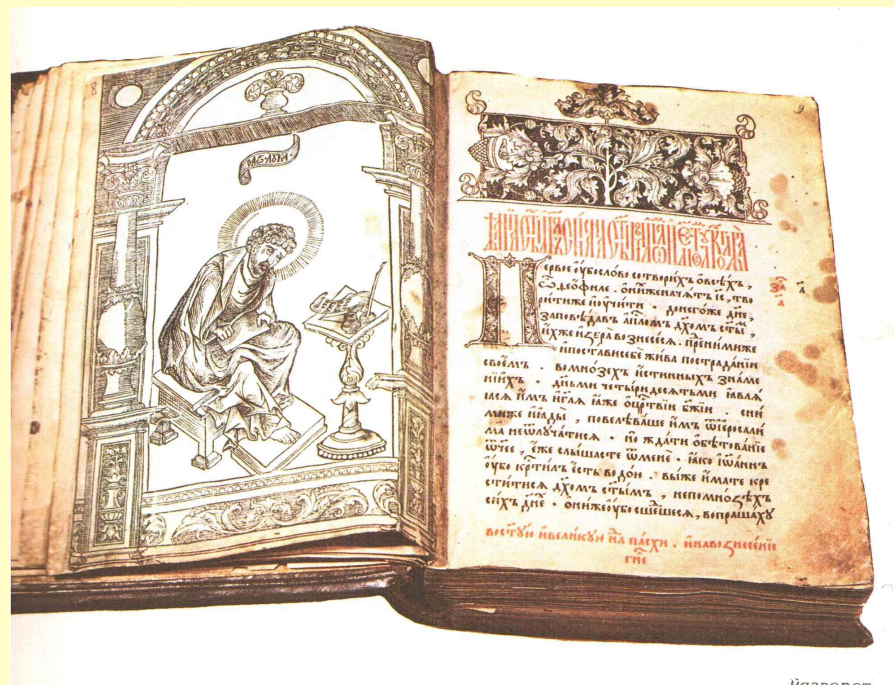 8
9
Первое оу҆бо сло́во сотвори́хъ ѻ҆ всѣ́хъ,
ѽ део́филе. о҆ ни́хже нача́тъ і҆с, тво
ри́тиже и҆ оу҆чи́ти. до него́же дн҃е,
заповѣ́давъ а҆пⷭ҇ломъ дх҃омъ ст҃ы́м,
и҆́хже и҆збра̀ вознесе́сѧ. пре́д ни́миже
и҆ поста́ви себѐ жи́ва по страда́нїи
свое́мъ. во мно́зехъ и҆́стинныхъ зна́ме
нїи҆хъ. дн҃ьми четы́ридесѧтьми ꙗ҆влѧ́
ѧсѧ и҆̀мъ и҆ глѧ ꙗ҆́же о҆ црⷭ҇твїи бж҃їи. с ни́
миже и҆ ꙗ҆ды̀, повелѣва́ше и҆̀мъ ѿ і҆еросали́
ма не ѿлуча́тисѧ. но жда́ти ѡ҆бѣтова́нїе
ѿч҃ее, е҆́же слы́шасте ѿ менѐ. ꙗ҆́ко і҆ѡа́ннъ
оу҆́бо крⷭ҇ти́лъ є҆́сть водо́ю. вы́же и҆́мате кре
сти́тисѧ дх҃омъ ст҃ы́мъ, не по мно́ѕѣхъ
си́хъ дн҃е. ѻ҆ни́же оу҆́бо сше́дшесѧ, вопроша́ху
во ст҃у́ю и҆ вели́кую нⷣѣ па́схи. и҆ на вознесе́нїе
гⷭ҇не